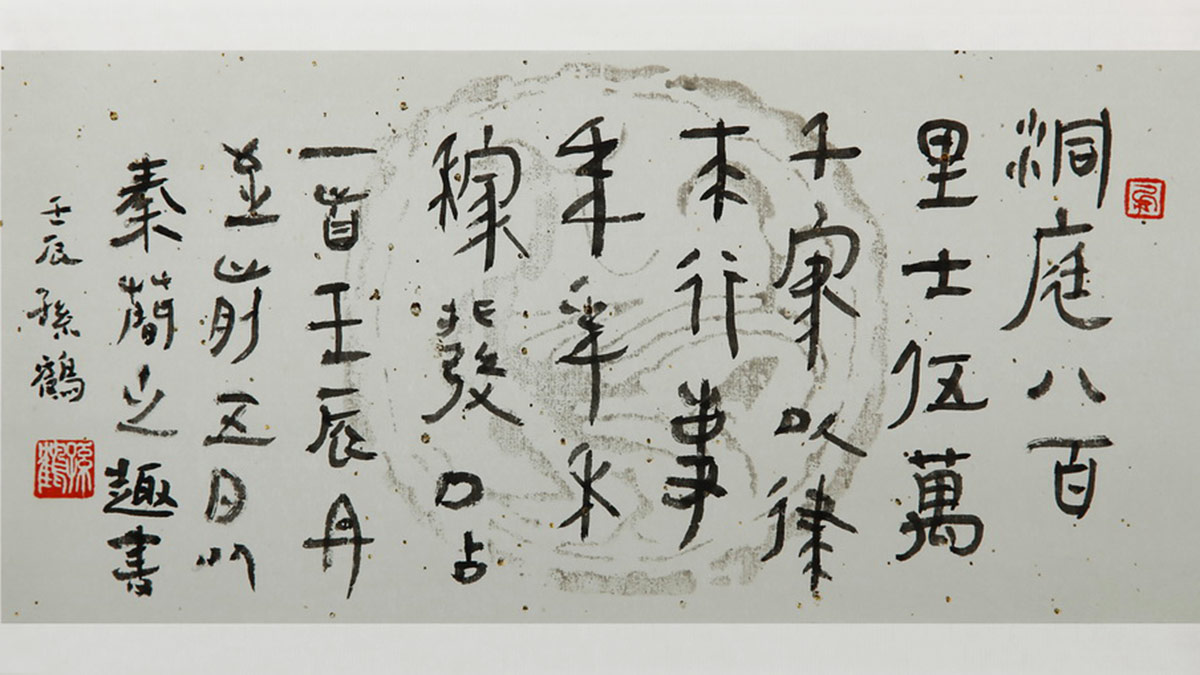 洞庭八百
里士伍萬
千家以律
本行事
年年禾
稼發口占
一首壬辰
前五日以
秦簡之趣書
壬辰孫鶴
孫鶴